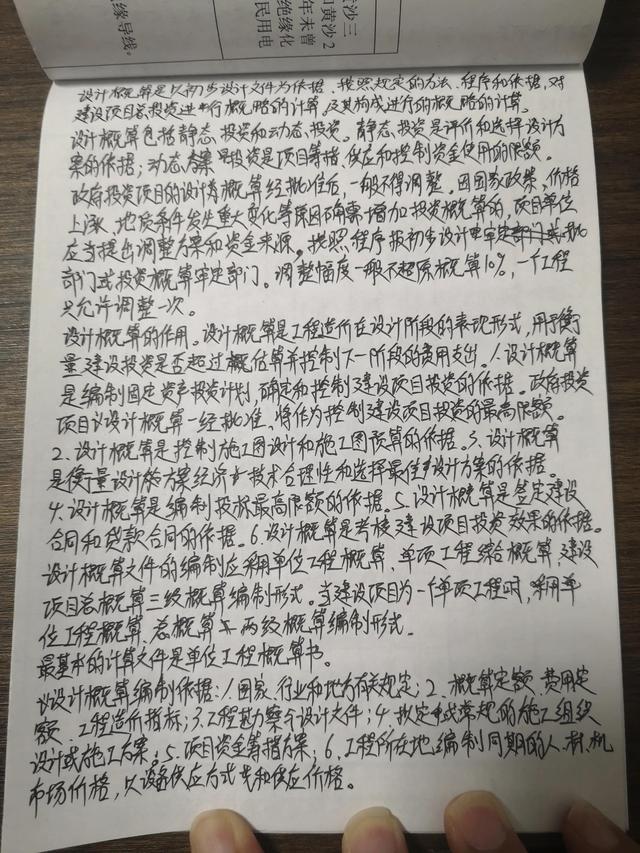 缘导线。
黄沙三
和黄沙2
年未曾
绝缘化
民用电
设计概算是以初步设计文件为依据，按照规定的方法、程序和依据，对
建设项目总投资进行概略的计算及其构成进行的概略的计算。
设计概算包括静态投资和动态投资。静态投资是评价和选择设计方
案的依据；动态投资是项目筹措、供应和控制资金使用的限额。
政府投资项目的设计概算经批准后，一般不得调整。因国家政策、价格
上涨、地质条件发生重大变化等原因确需增加投资概算的，项目单位
应当提出调整方案和资金来源。按照程序报初步设计审定部门或批
部门或投资概算审定部门。调整幅度一般不超原概算10%，一个工程
只允许调整一次。
设计概算的作用。设计概算是工程造价在设计阶段的表现形式，用于衡
量建设投资是否超过概估算并控制下一阶段的费用支出。1.设计概算
是编制固定资产投资计划，确定和控制建设项目投资的依据。政府投资
项目设计概算一经批准，将作为控制建设项目投资的最高限额。
2.设计概算是控制施工图设计和施工图预算的依据。3.设计概算
是衡量设计方案经济技术合理性和选择最佳设计方案的依据。
4.设计概算是编制投标最高限额的依据。5.设计概算是签定建设
合同和贷款合同的依据。6.设计概算是考核建设项目投资效果的依据。
设计概算文件的编制应采用单位工程概算、单项工程综合概算、建设
项目总概算三级概算编制形式。当建设项目为一个单项工程时，采用单
位工程概算、总概算两级概算编制形式。
最基本的计算文件是单位工程概算书。
设计概算编制依据：1.国家、行业和地方有关规定；2.概算定额、费用定
额、工程造价指标；3.工程勘察与设计文件；4.拟定或常规的施工组织
设计或施工方案；5.项目资金筹措方案；6.工程所在地编制同期的人、材、机
市场价格，以设备供应方式和供应价格。